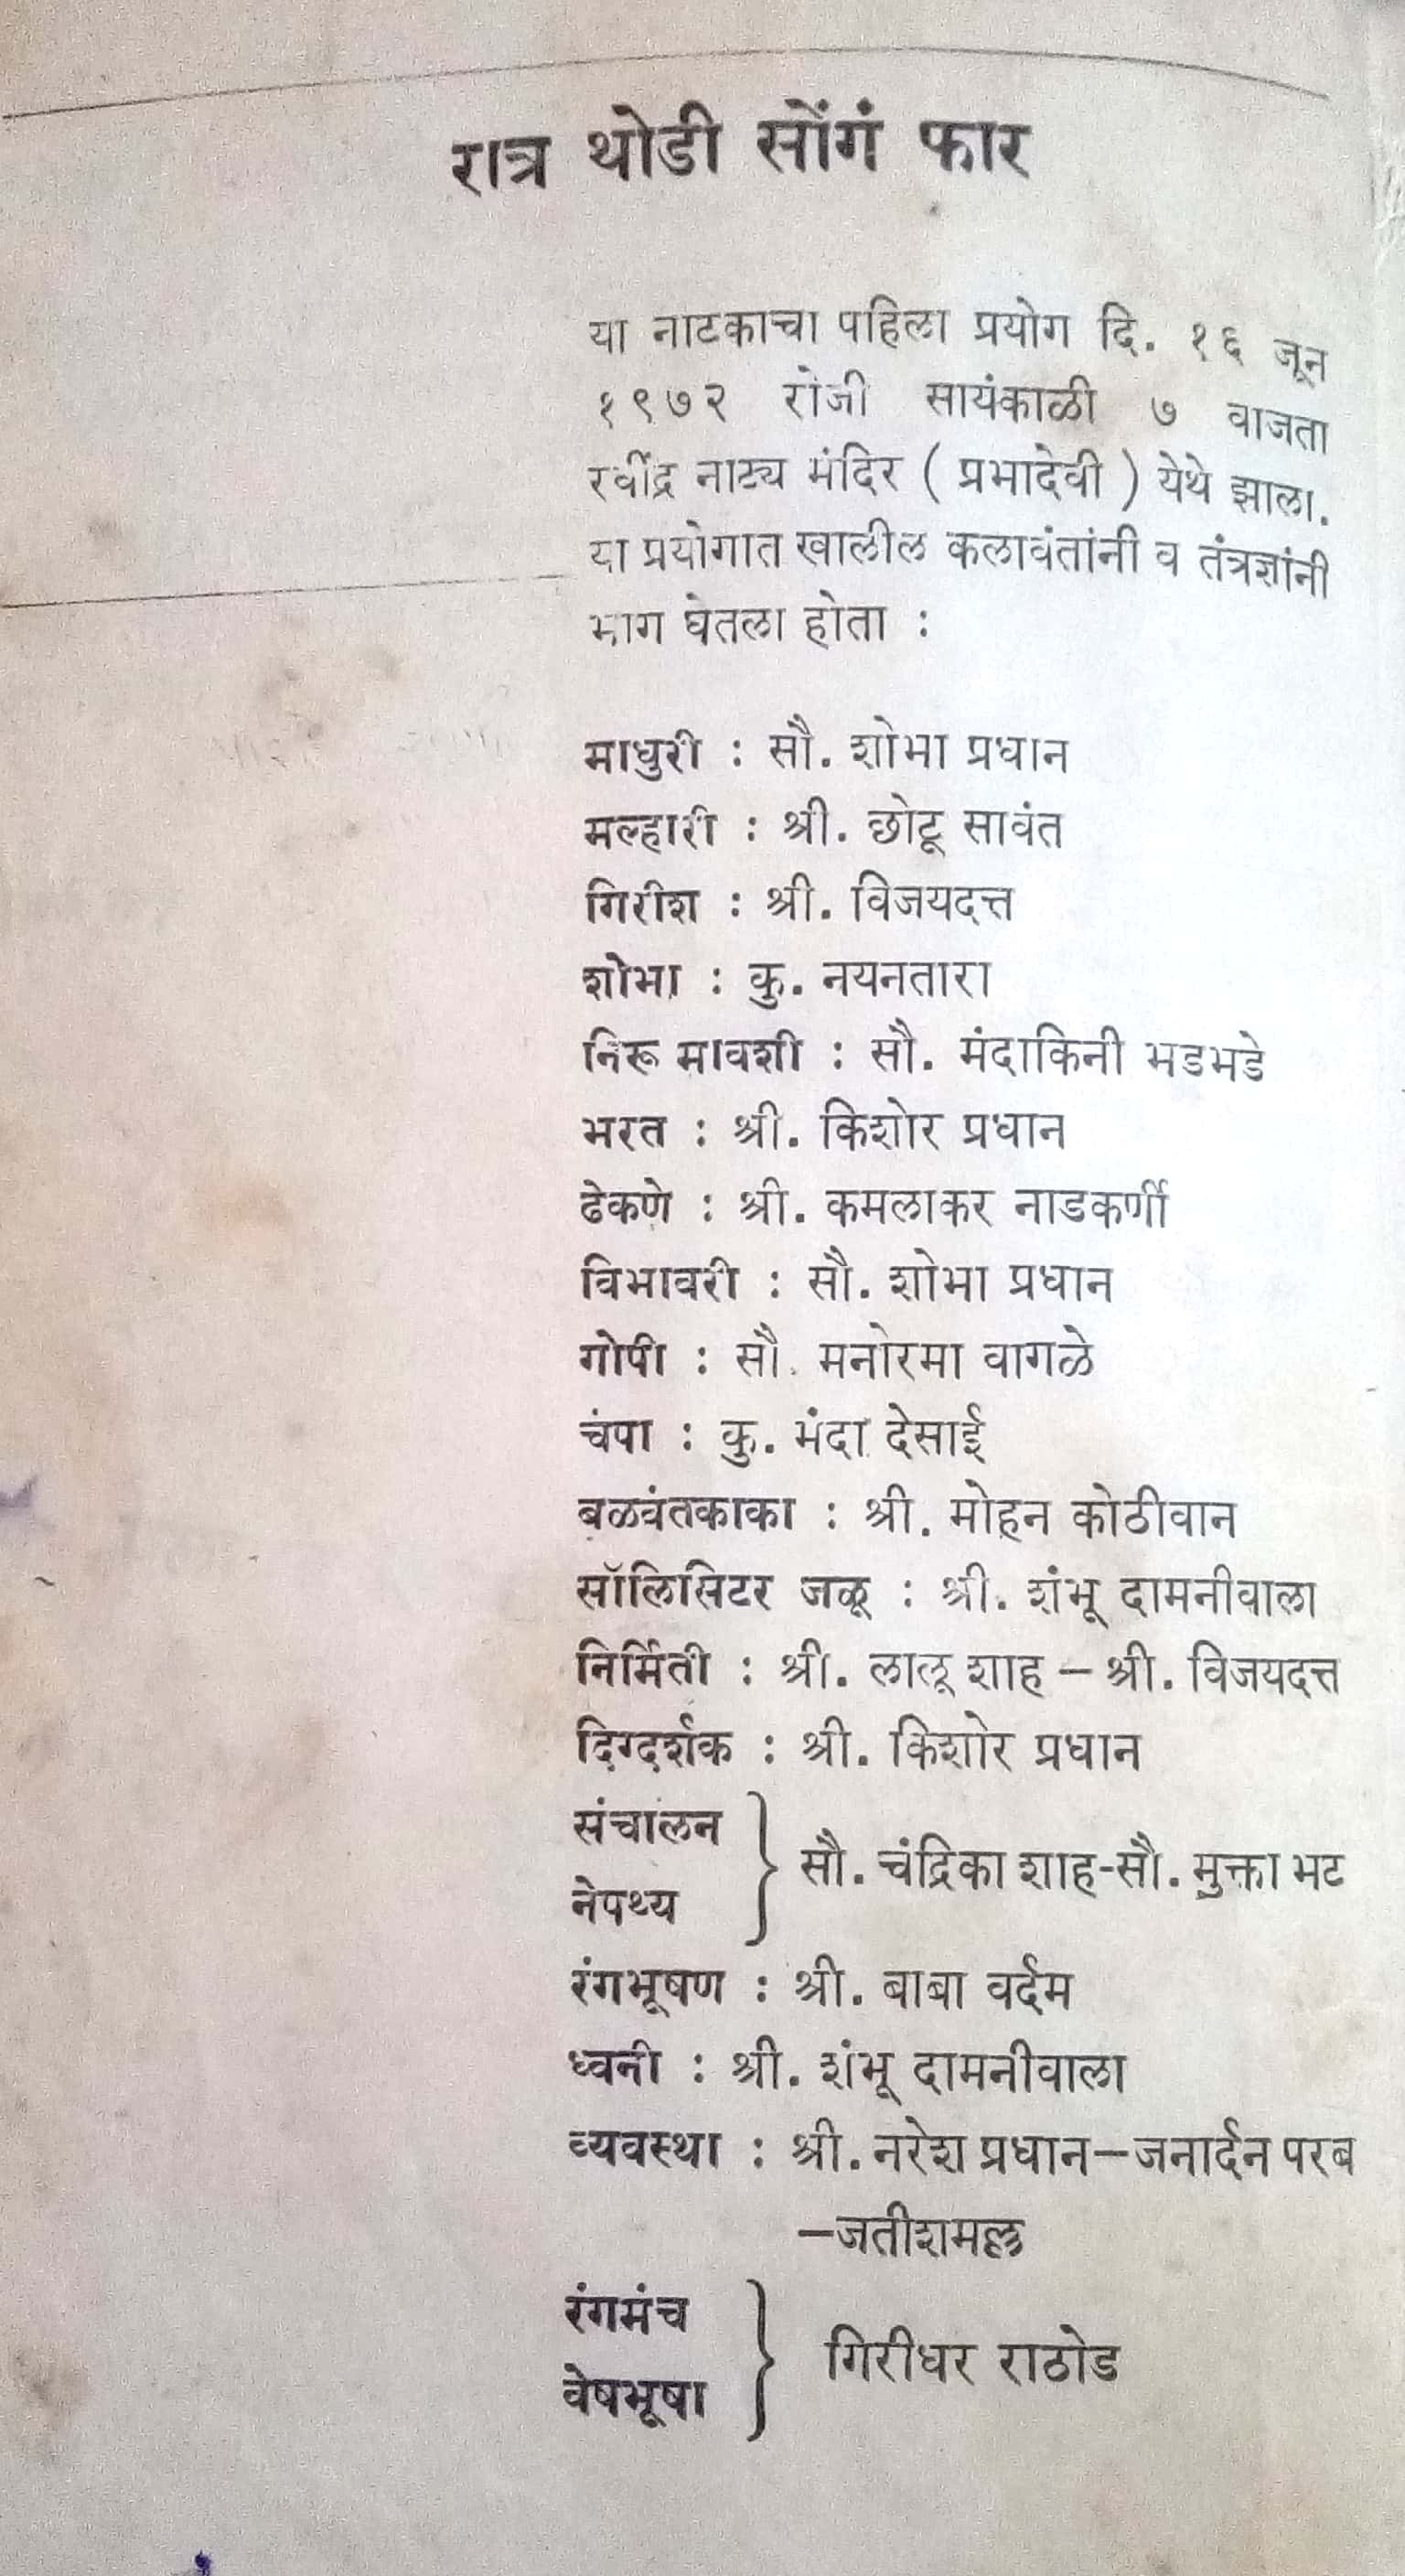 रात्र थोडी सोंगं फार
या नाटकाचा पहिला प्रयोग दि. १६ जून
१९७२ रोजी सायंकाळी ७ वाजता
रवींद्र नाट्य मंदिर ( प्रभादेवी ) येथे झाला.
या प्रयोगात खालील कलावंतांनी व तंत्रज्ञांनी
भाग घेतला होता :
माधुरी : सौ. शोभा प्रधान
मल्हारी : श्री. छोटू सावंत
गिरीश : श्री. विजयदत्त
शोभा : कु. नयनतारा
निरू मावशी : सौ. मंदाकिनी भडभडे
भरत : श्री. किशोर प्रधान
ढेकणे : श्री. कमलाकर नाडकर्णी
विभावरी : सौ. शोभा प्रधान
गोपी : सौ. मनोरमा वागळे
चंपा : कु. मंदा देसाई
बळवंतकाका : श्री. मोहन कोठीवान
सॉलिसिटर जळू : श्री. शंभू दामनीवाला
निर्मिती : श्री. लालू शाह – श्री. विजयदत्त
दिग्दर्शक : श्री. किशोर प्रधान
संचालन
नेपथ्य } सौ. चंद्रिका शाह-सौ. मुक्ता भट
रंगभूषण : श्री. बाबा वर्दम
ध्वनी : श्री. शंभू दामनीवाला
व्यवस्था : श्री. नरेश प्रधान–जनार्दन परब
–जतीशमल्ल
रंगमंच
वेषभूषा } गिरीधर राठोड